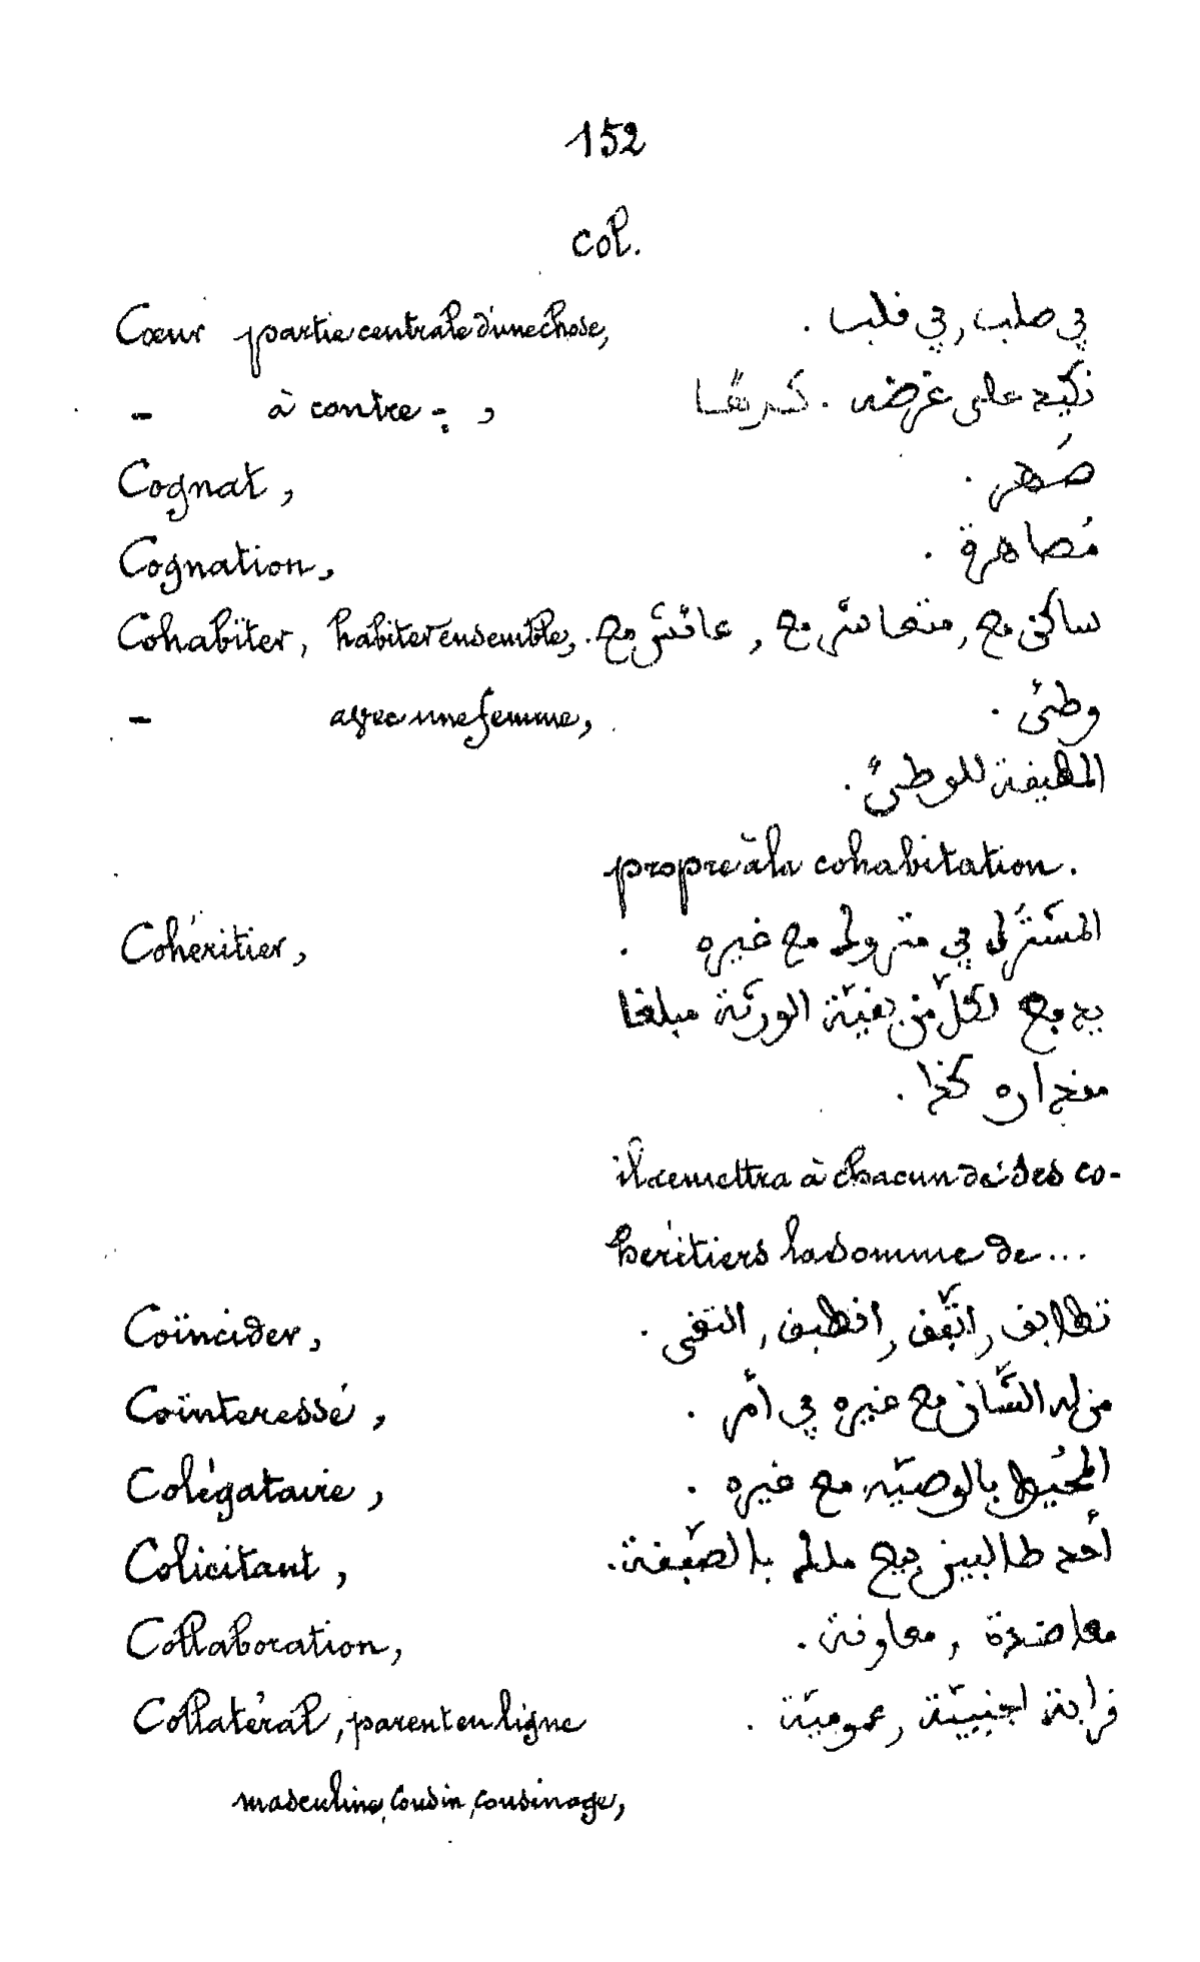 152
col.
Cœur partie centrale d'une chose, في صلب, في قلب.
- à contre -, على غرضه. كرها
Cognat, صَهر.
Cognation, مُصاهرة.
Cohabiter, habiter ensemble, ساكن مع, متعاشر مع, عائش مع.
- avec une femme, وطئ.
للوطئ.
propre à la cohabitation.
Cohéritier, المشترك في متروك مع غيره.
يدفع لكلّ من بقيّة الورثة مبلغا
مقداره كذا.
il remettra à chacun de ses co-
héritiers la somme de...
Coïncider, تطابق, اتّفق, انطبق, التقى.
Cointeressé, من له الشّأن مع غيره في أمر.
Colégataire, بالوصيّة مع غيره.
Colicitant, أحد طالبين بيع ملك بالصّفقة.
Collaboration, معاضدة, معاونة.
Collatéral, parent en ligne قرابة اجنبيّة, عموميّة.
masculine, cousin, cousinage,